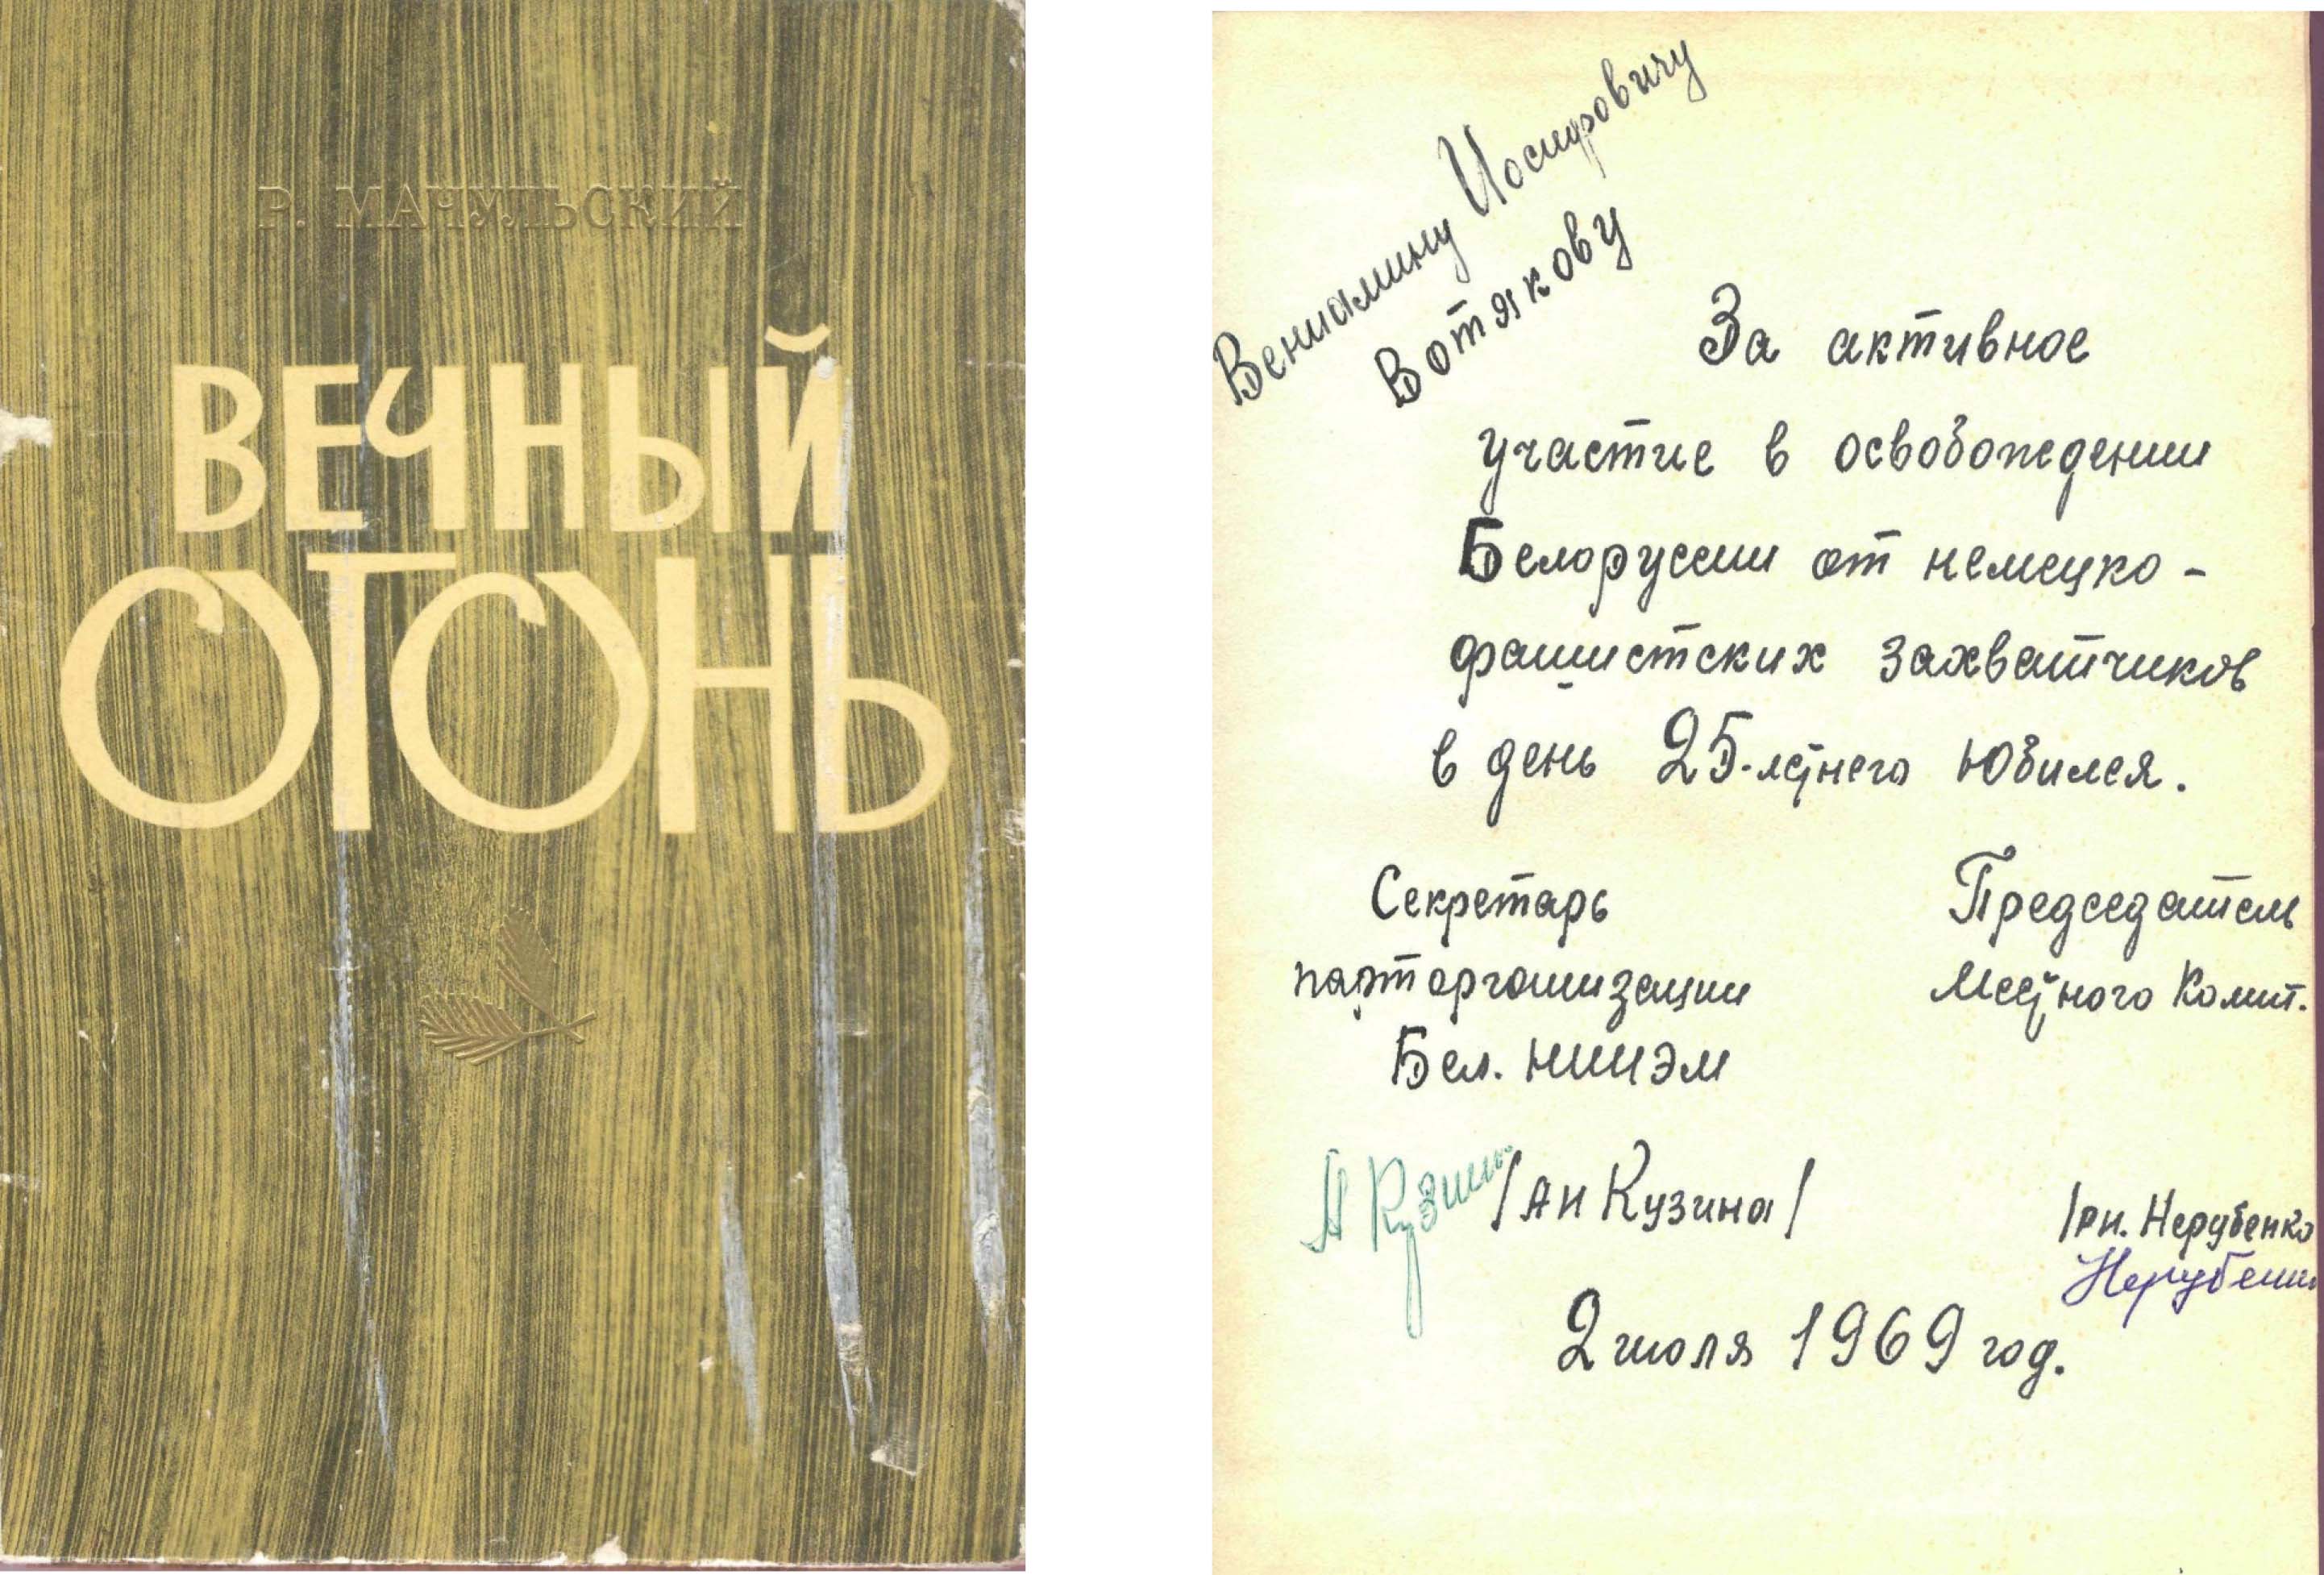 Р. МАЧУЛЬСКИЙ
ВЕЧНЫЙ
ОГОНЬ
Вениамину Иосифовичу
Вотякову
За активное
участие в освобождении
Белоруссии от немецко-
фашистских захватчиков
в день 25-летнего Юбилея.
Секретарь
парторганизации
Бел. НИИЭМ
Председатель
Местного Комит.
А Кузин /АН Кузина/
/РН. Нерубенко
Нерубенк
2 июля 1969 год.